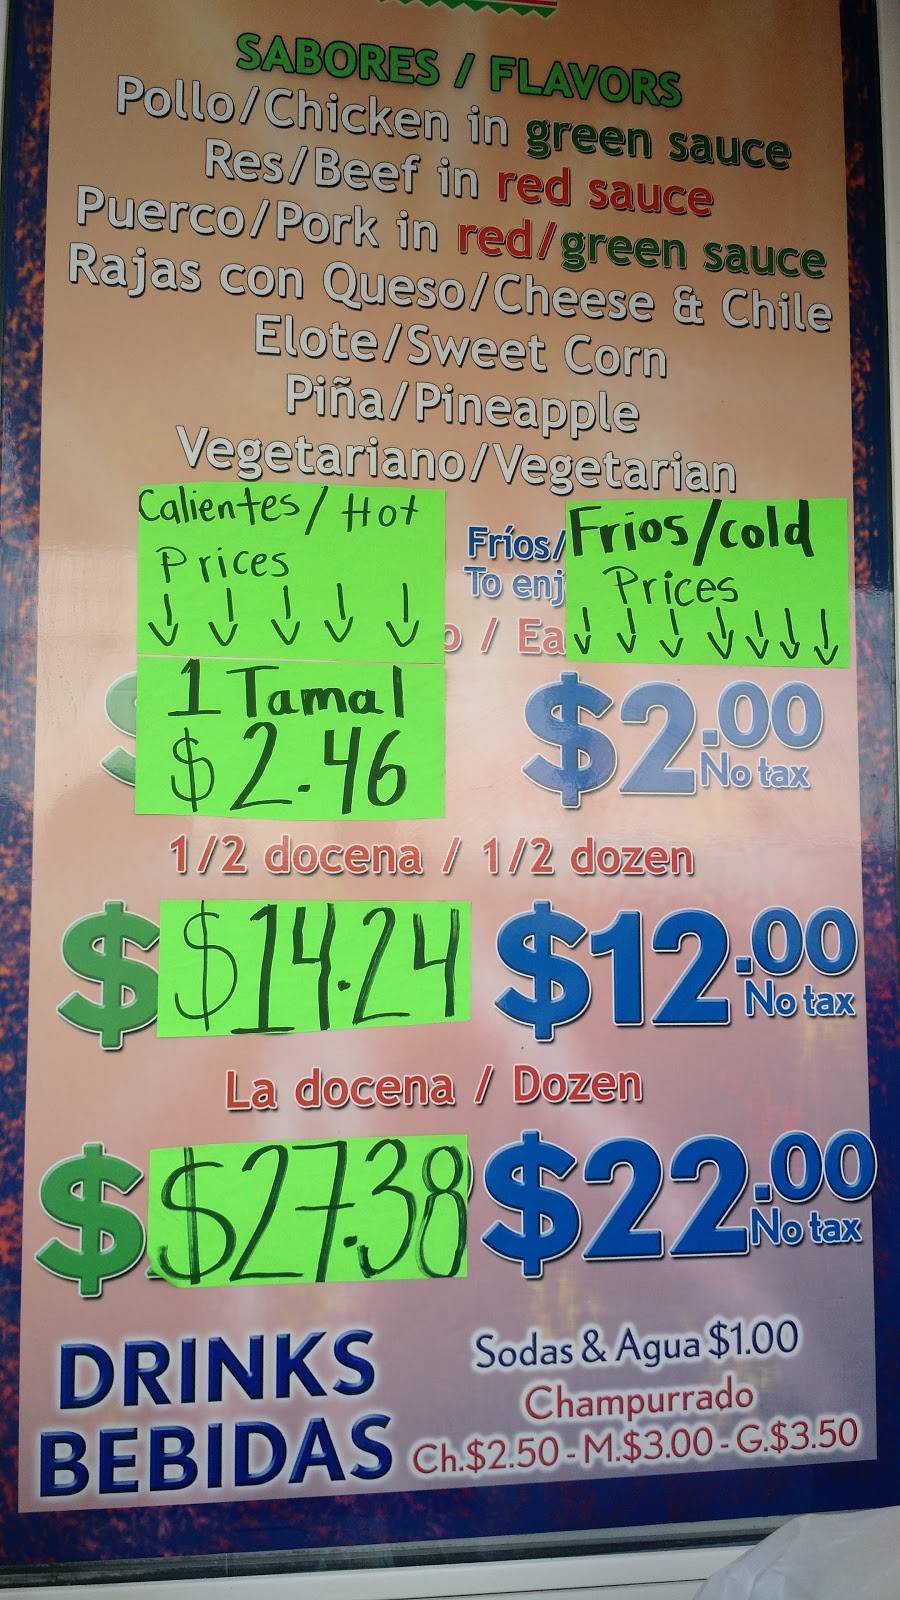 SABORES / FLAVORS
Pollo/Chicken in green sauce
Res/Beef in red sauce
Puerco/Pork in red/green sauce
Rajas con Queso/Cheese & Chile
Elote/Sweet Corn
Piña/Pineapple
Vegetariano/Vegetarian
Calientes/Hot
Prices
Fríos/
To enj
Frios/cold
Prices
o / Ea
1 Tamal
$2.46
$2.00
No tax
1/2 docena / 1/2 dozen
$ $14.24
$12.00
No tax
La docena / Dozen
$ $27.38
$22.00
No tax
DRINKS
BEBIDAS
Sodas & Agua $1.00
Champurrado
Ch.$2.50 - M.$3.00 - G.$3.50